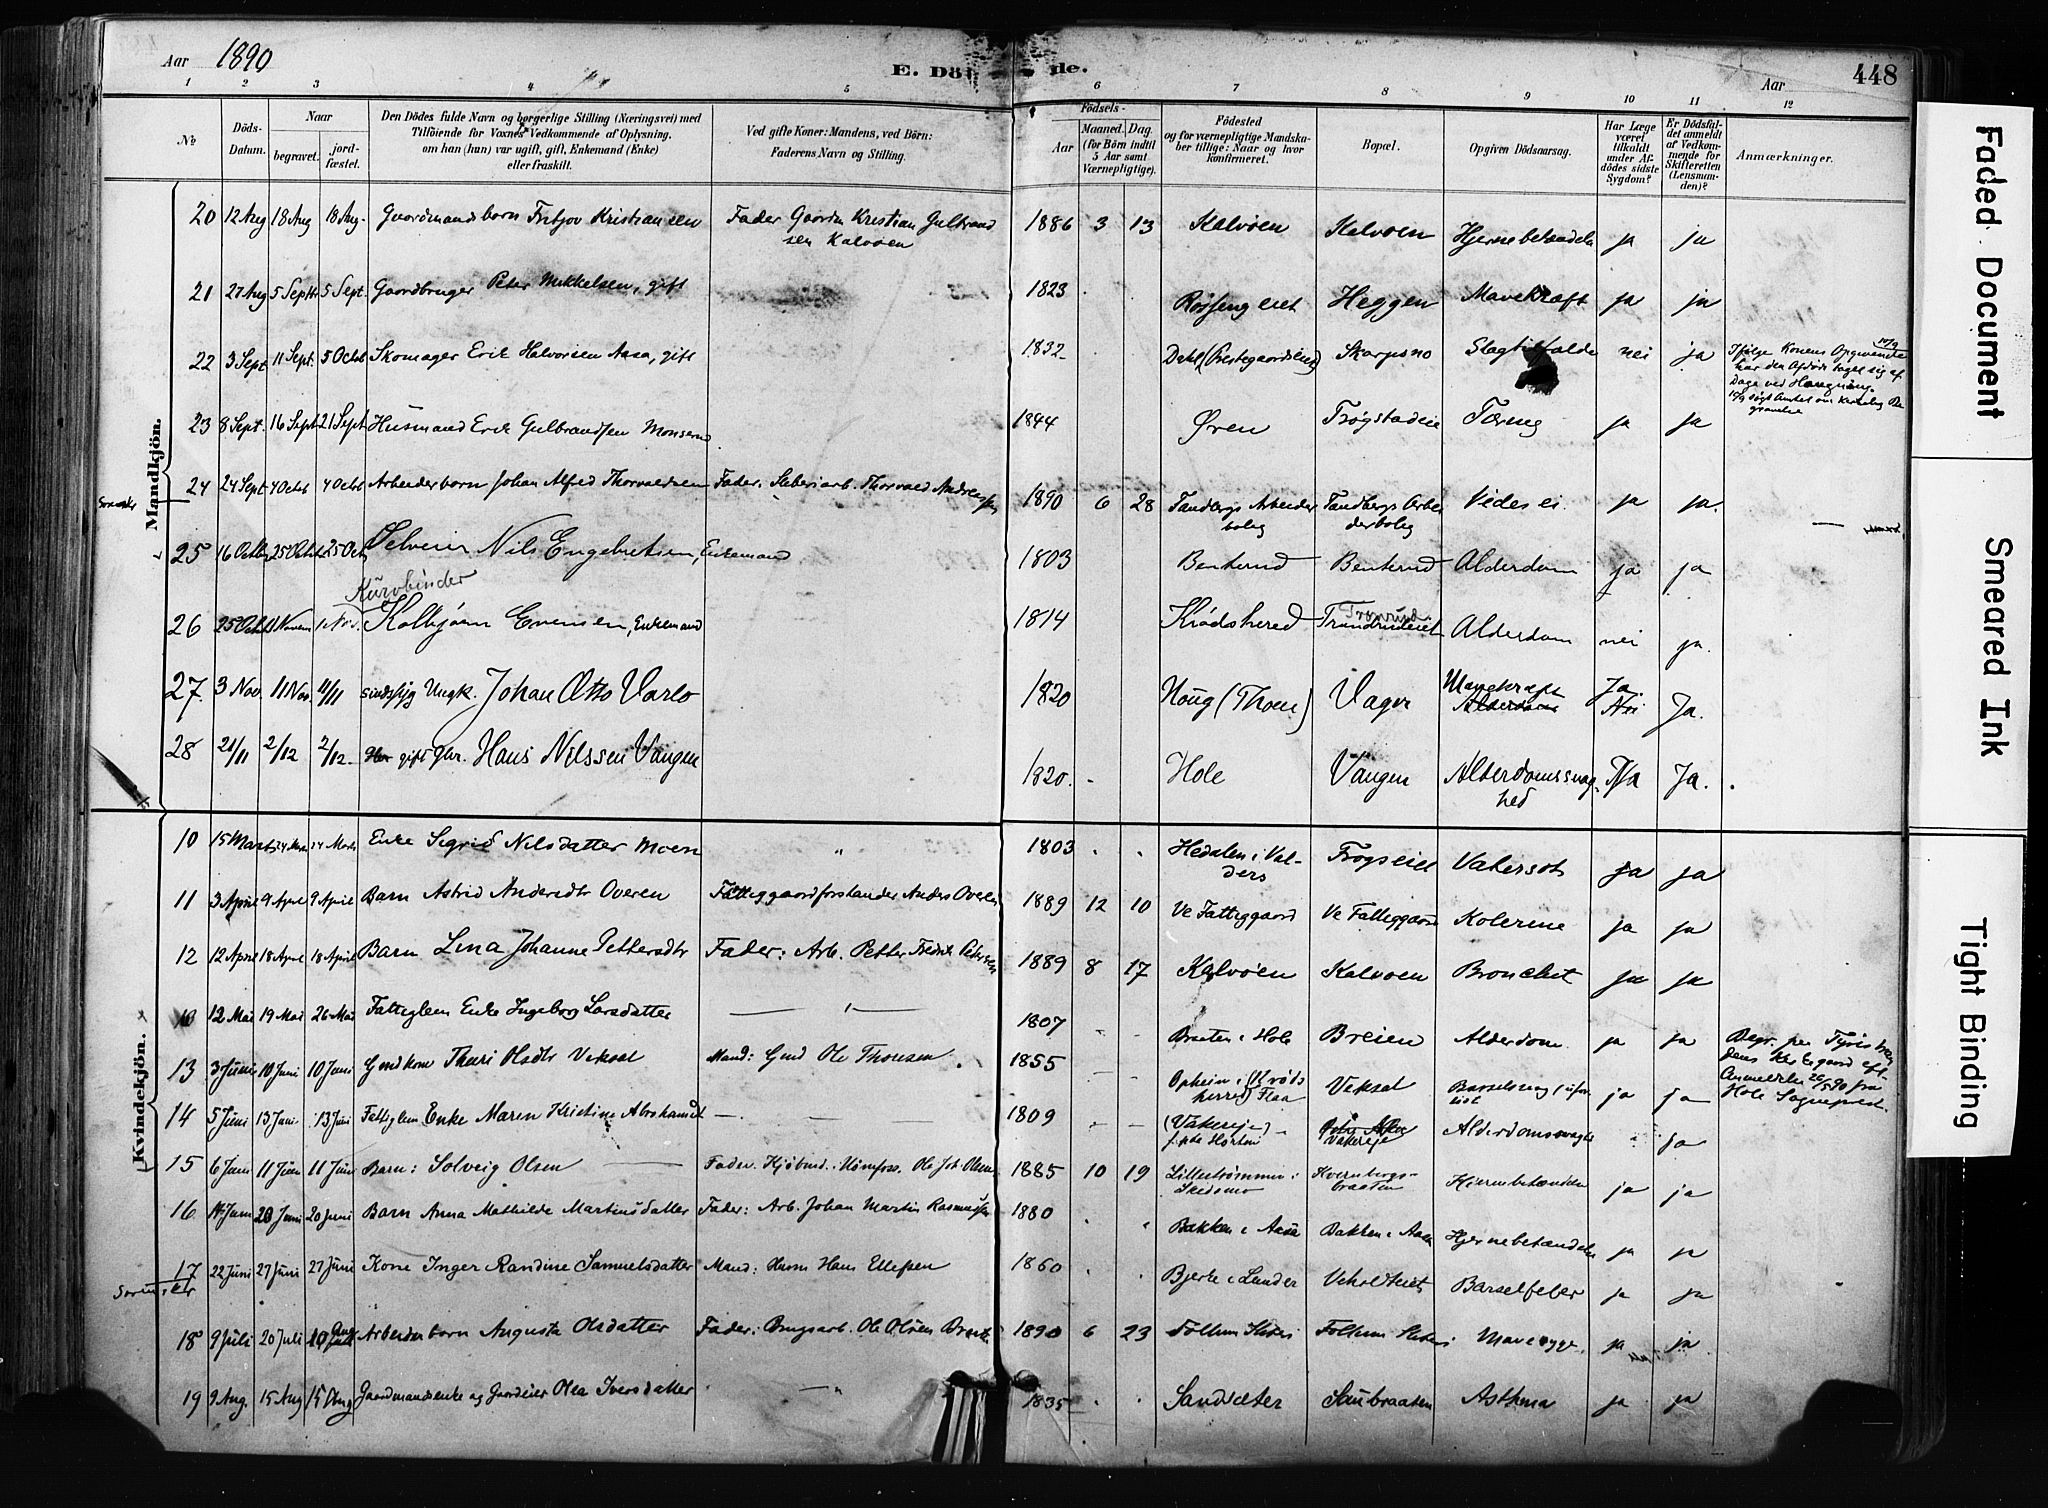 Aar 1890
E. Dö de.
Aar
448
1 2 3 4 5 6 7 8 9 10 11 12
No
Döds-Datum.
Naar
begravet.
jord-fæstet.
Den Dödes fulde Navn og borgerlige Stilling (Næringsvei) med
Tilföiende for Voxnes Vedkommende af Oplysning,
om han (hun) var ugift, gift, Enkemand (Enke)
eller fraskilt.
Ved gifte Koner: Mandens, ved Börn:
Faderens Navn og Stilling.
Födsels-
Aar
Maaned. Dag.
(for Börn indtil
5 Aar samt
Værnepligtige).
Födested
og for værnepligtige Mandska-
ber tillige: Naar og hvor
konfirmeret.
Bopæl.
Opgiven Dödsaarsag.
Har Læge
været
tilkaldt
under Af-
dödes sidste
Sygdom?
Er Dödsfal-
det anmeldt
af Vedkom-
mende for
Skifteretten
(Lensman-
den)?
Anmærkninger.
Mandkjön.
20 12 Aug 18 Aug 18 Aug. Gaardmandsborn Fritjov Kristiansen Fader Gaardm Kristian Gulbrand 1886 3 13 Kalvøen Kalvøen Hjernebetændele ja ja
sen Kalvøen
21 27 Aug 5 Septr 5 Sept. Gaardbruger Peter Mikkelsen, gift 1823 Heggen Mavekræft ja ja
22 3 Sept 11 Sept. 5 Octob Skomager Erik Halvorsen Aasa, gift 1832 Dahl, Skarpsno Slagtilfælde nei ja Ifølge Konens
har den Afdøde taget sig af
Dage ved Hængning.
23 8 Sept. 16 Sept 21 Sept Husmand Erik Gulbrandsen Monserud 1844 Øren Trøgstadeie Tæring ja ja
24 24 Sept 4 Octob 4 Octob Arbeiderborn Johan Alfred Thorvaldsen Fader: Sliberiarb. Thorvald Andreassen 1890 6 28 Tandbergs Arbeider Tandbergs Arbei Vides ei ja ja.
bolig derbolig
25 16 Octb 25 Octob 25 Oct Selveier Nils Engebretsen, Enkemand 1803 Benterud Benterud Alderdom ja ja
Kurvbinder
26 25 Octob 1 Novem 1 Nov. Kolbjørn Evensen, Enkemand 1814 Krødshered Trondrudeiet Alderdom nei ja.
27. 3 Nov. 11 Nov. 11/11 sindssyg Ungk. Johan Otto Varlo 1820 Houg (Thoen) Vager Mavekræft Ja Ja.
Alderdom Nei
28 21/11 2/12 2/12. gift Gbr. Hans Nilssen Vangen 1820. Hole Vangen Alderdomssvag- Ja Ja.
hed
Kvindekjön.
10 15 Marts 24 Marts 24 Marts Enke Sigrid Nilsdatter Moen " 1803 Hedalen i Val- Trøgseiet Vatersot ja ja
ders
11 3 April 9 April 9 April Barn Astrid Andersdtr Overen Fattiggaardforstander Anders Overen 1889 12 10 Ve Fattiggaard Ve Fattiggaard Kolerine ja ja
12 12 April 18 April 18 April Barn Lina Johanne Pettersdtr Fader: Arb. Petter Fredrik Petersen 1889 8 17 Kalvøen Kalvøen Bronchit ja ja
12 Mai 19 Mai 26 Mai Fattiglem Enke Ingeborg Larsdatter 1807 Braaten i Hole Breien Alderdom ja ja Begr. paa Tyristran
dens Kirkegaard eft.
Anmeldelse 26/5 90 fra
Hole Sogneprest.
13 3 Juni 10 Juni 10 Juni Gmdkone Thuri Olsdtr Veksal Mand: Gmd Ole Thorsen 1855 Opheim i (Krøds Veksal Barselseng, ja ja
herred) Flaa
14 5 Juni 13 Juni 13 Juni Fattiglem Enke Maren Kristine Abrahamsdtr 1809 (Vakereje) Vakereje Alderdomssvaghe ja
15 6 Juni 11 Juni 11 Juni Barn: Solveig Olsen Fader. Kjøbmd. i Hønefoss. Ole Joh. Olsen 1885 10 19 Lillestrømmen i Kvernbergs- Hjernebetændele ja ja
Skedsmo braaten
16 14 Juni 20 Juni 20 Juni Barn Anna Mathilde Martinsdatter Fader: Arb. Johan Martin Rasmussen 1880 Bakken i Aasa Bakken i Aasa Hjernebetændele ja ja
17 22 Juni 27 Juni 27 Juni Kone Inger Randine Samuelsdatter Mand: Husm Hans Ellefsen 1860 Bjerke i Lunder Veholdteiet Barselfeber ja ja
18 9 Juli 20 Juli 10 Aug Arbeiderborn Augusta Olsdatter Fader: Brugsarb. Ole Olsen 1890 6 23 Follum Follum Mavesyge ja ja
19 9 Aug. 15 Aug 15 Aug Gaardmandsenke og Gaardeier Olea Iversdatter " 1835 Sandsæter Saubraaten Asthma ja ja
Faded Document
Smeared Ink
Tight Binding